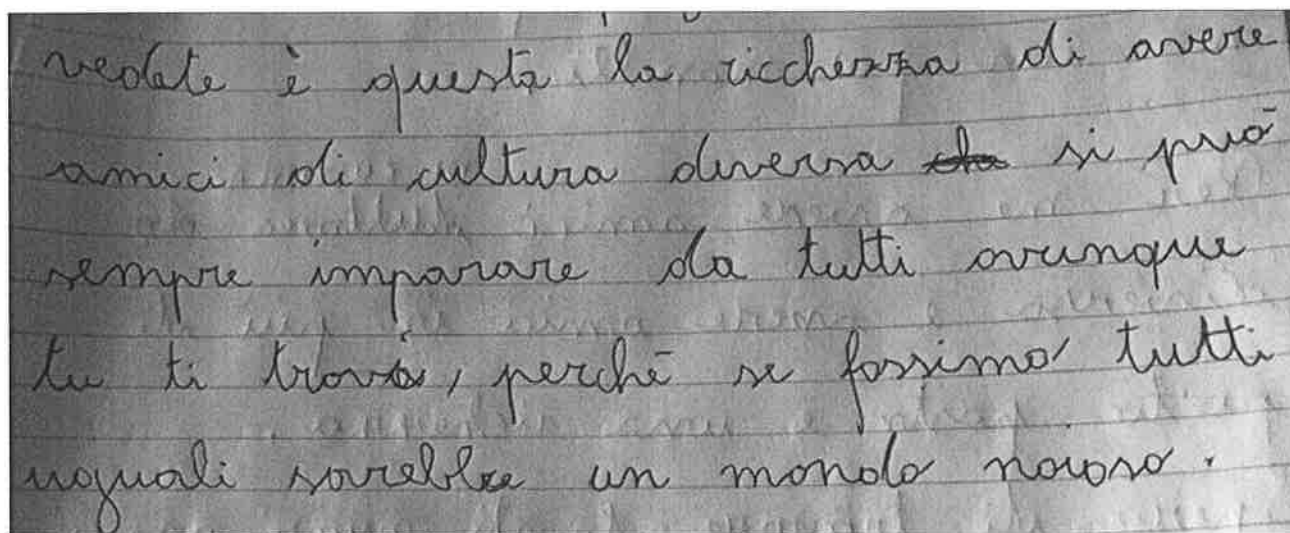 vedete è questa la ricchezza di avere
amici di cultura diversa si può
sempre imparare da tutti ovunque
tu ti trovi, perchè se fossimo tutti
uguali sarebbe un mondo noioso.